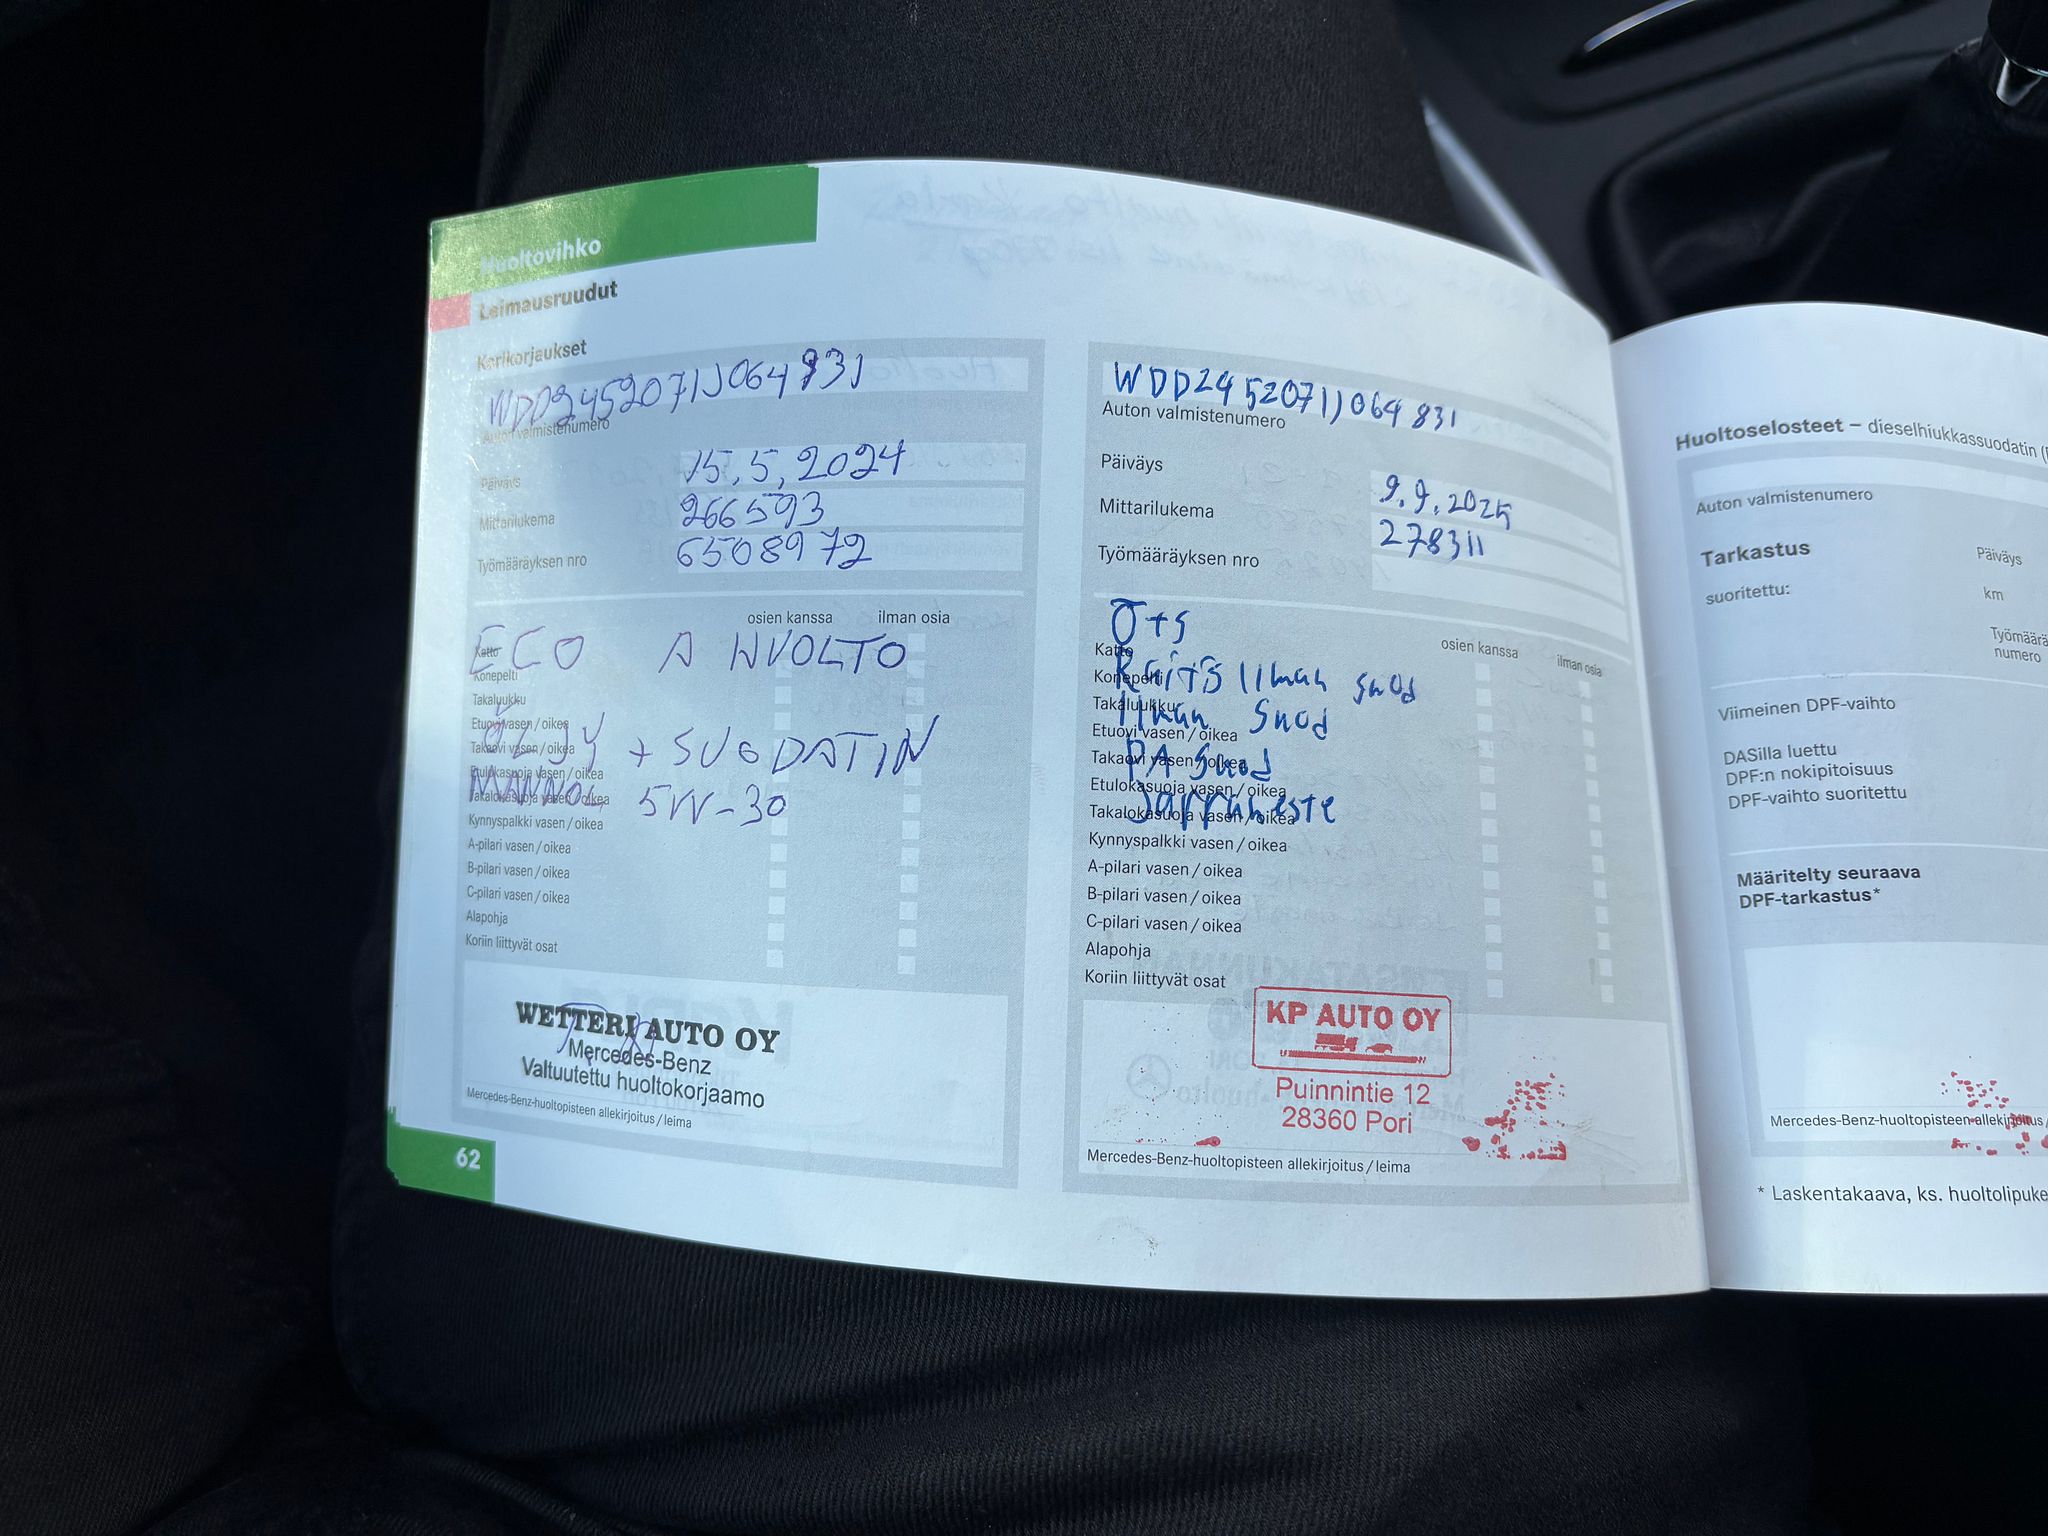 Huoltovihko
Leimausruudut
Korikorjaukset
WDD2452071J064831
Auton valmistenumero
Päiväys 15.5.2024
Mittarilukema 266593
Työmääräyksen nro 6508972
osien kanssa ilman osia
ECO A HUOLTO
Katto
Konepelti
Takaluukku
Etuovi vasen / oikea
ÖLJY + SUODATIN
Takaovi vasen / oikea
Etulokasuoja vasen / oikea
MANNOL 5W-30
Takalokasuoja vasen / oikea
Kynnyspalkki vasen / oikea
A-pilari vasen / oikea
B-pilari vasen / oikea
C-pilari vasen / oikea
Alapohja
Koriin liittyvät osat
WETTERI AUTO OY
Mercedes-Benz
Valtuutettu huoltokorjaamo
Mercedes-Benz-huoltopisteen allekirjoitus / leima
62
WDD2452071J064831
Auton valmistenumero
Päiväys 9.9.2025
Mittarilukema 278311
Työmääräyksen nro
osien kanssa ilman osia
Ö+S
Katto
Raitis Ilman suod
Konepelti
Takaluukku
Ilman Suod
Etuovi vasen / oikea
Takaovi vasen / oikea
PA Suod
Etulokasuoja vasen / oikea
Jarruneste
Takalokasuoja vasen / oikea
Kynnyspalkki vasen / oikea
A-pilari vasen / oikea
B-pilari vasen / oikea
C-pilari vasen / oikea
Alapohja
Koriin liittyvät osat
KP AUTO OY
Puinnintie 12
28360 Pori
Mercedes-Benz-huoltopisteen allekirjoitus / leima
Huoltoselosteet – dieselhiukkassuodatin
Auton valmistenumero
Tarkastus Päiväys
suoritettu: km
Työmäärä
numero
Viimeinen DPF-vaihto
DASilla luettu
DPF:n nokipitoisuus
DPF-vaihto suoritettu
Määritelty seuraava
DPF-tarkastus*
Mercedes-Benz-huoltopisteen allekirjoitus /
* Laskentakaava, ks. huoltolipuke